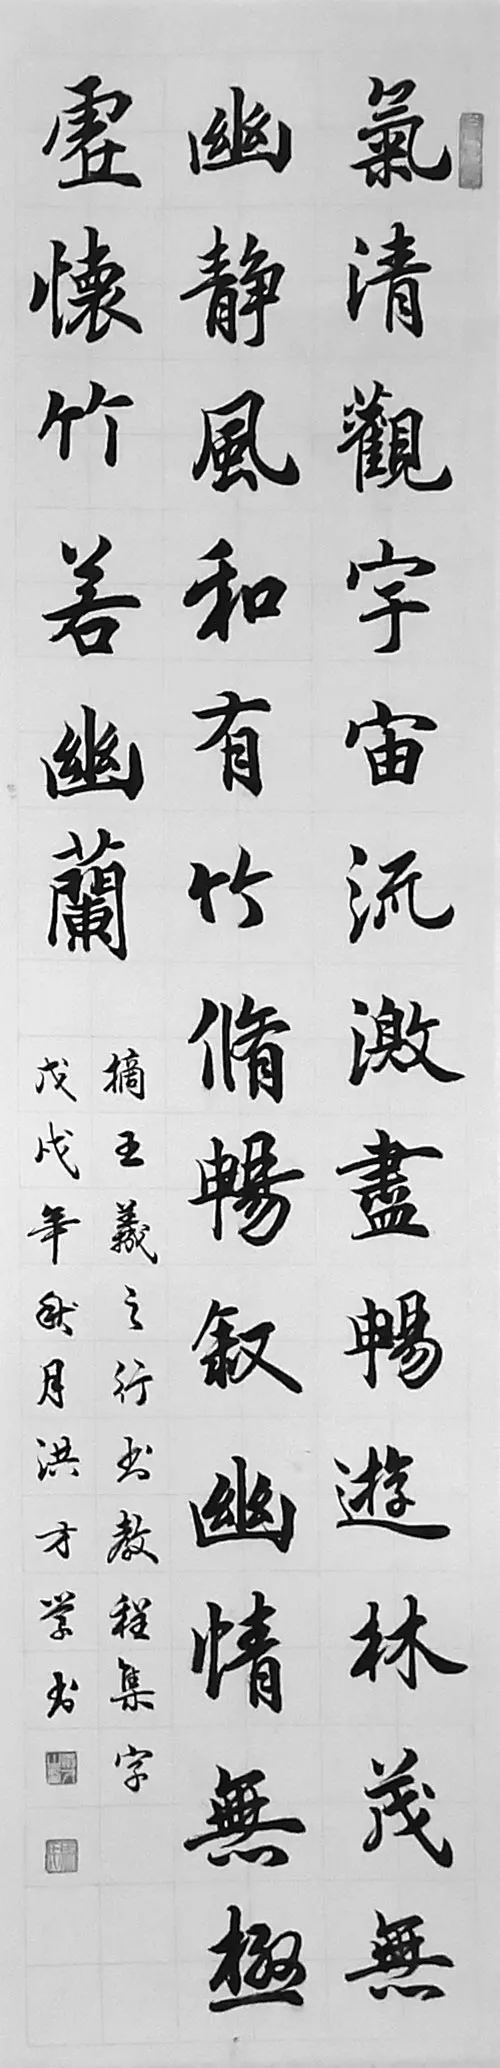 氣清觀宇宙流激盡暢遊林茂無
幽静風和有竹脩暢叙幽情無極
虛懷竹若幽蘭
摘王羲之行书教程集字
戊戌年秋月洪才学书